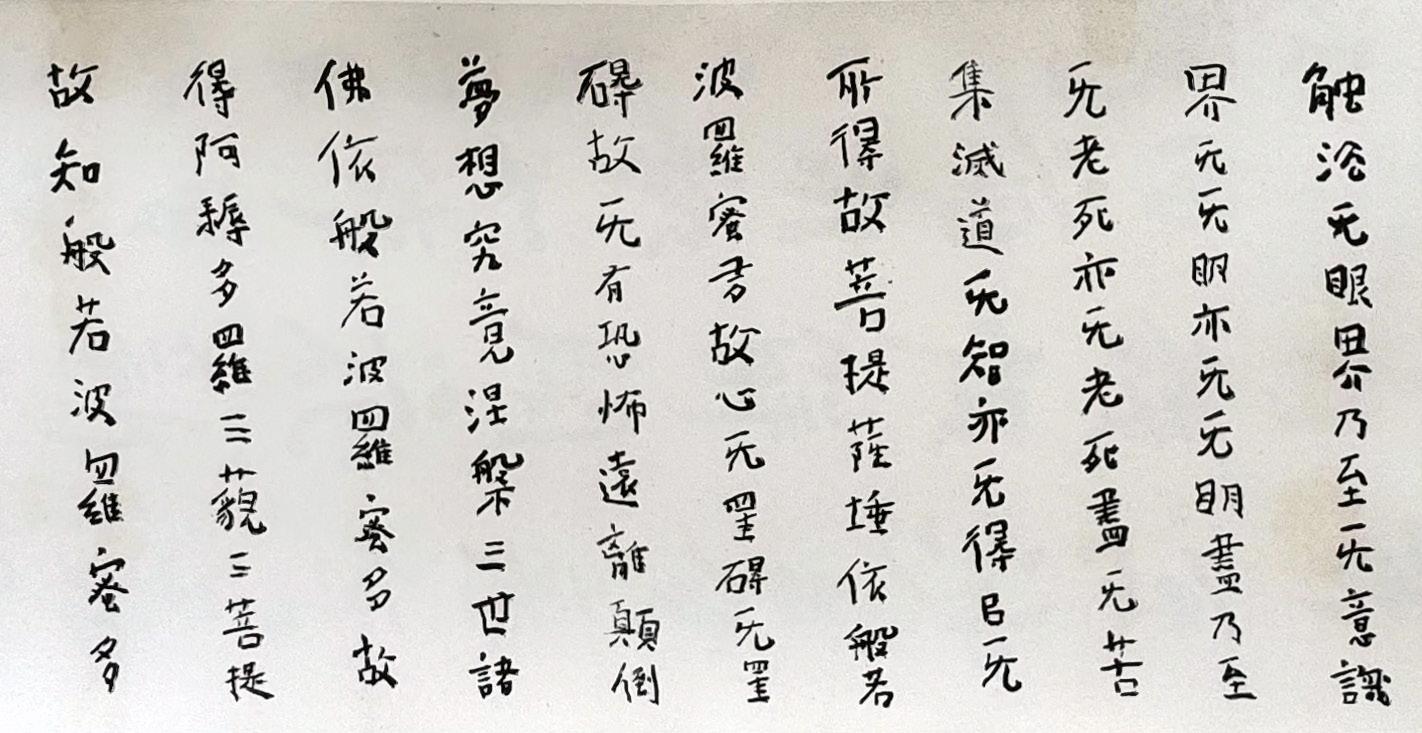 触法无眼界乃至无意識
界无无明亦无无明盡乃至
无老死亦无老死盡无苦
集滅道无智亦无得㠯无
所得故菩提薩埵依般若
波羅蜜多故心无罣碍无罣
碍故无有恐怖遠離顛倒
夢想究竟涅槃三世諸
佛依般若波羅蜜多故
得阿耨多羅三藐三菩提
故知般若波羅蜜多